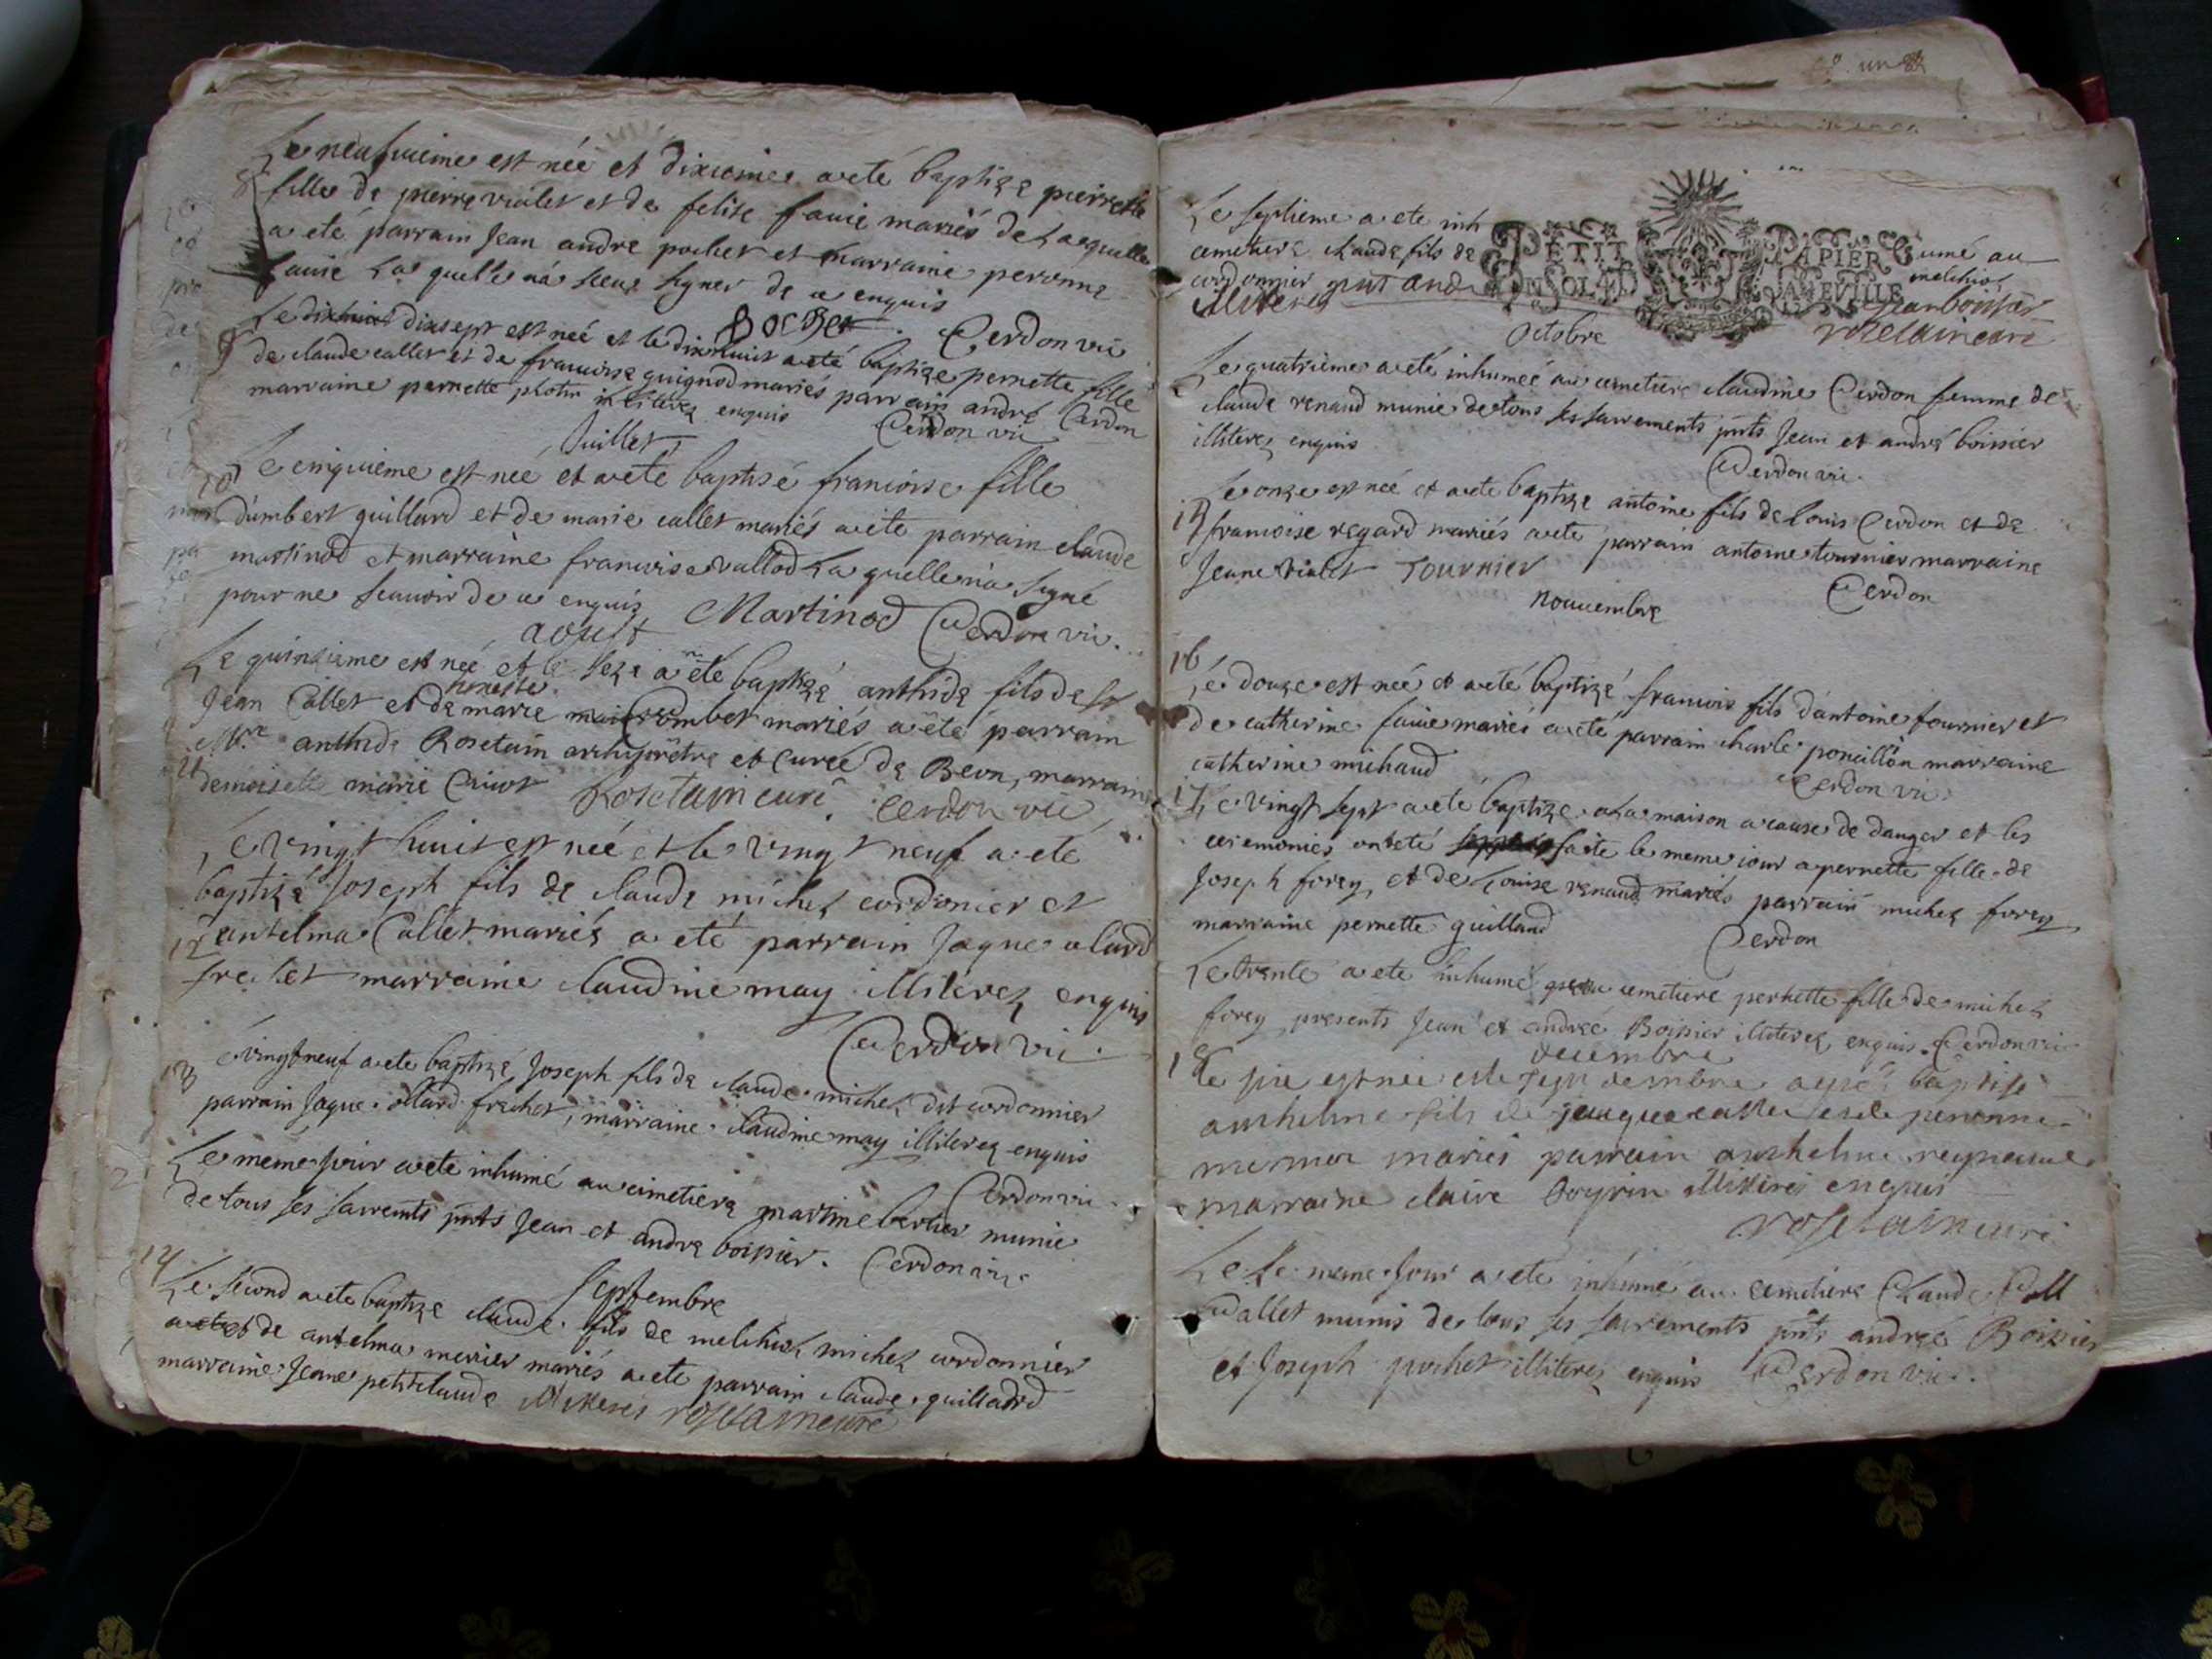 Le neufuieme est née et dixieme a eté baptiza pierrette
8 fille de pierre violet et de felise fauie mariés de laquelle
a eté parrain Jean andre pochet et marraine peronne
fauié laquelle na sceu signer de ce enquis
Pochet Cerdon vic
Le dixsept est née et le dixhuit a eté baptizee pernette fille
9 de claude callet et de francoise guignod mariés parrain andré Cerdon
marraine pernette illiterez enquis Cerdon vic
Juillet
10 Le cinquieme est neé et a eté baptisé francoise fille
d'umbert guillard et de marie callet mariés a eté parrain claude
martinod et marraine francoise vallod laquelle n'a signé
pour ne scauoir de ce enquis Martinod Cerdon vic.
aoust
Le quinzieme est neé et le seze a eté baptizé anthide fils de sr
Jean Callet et de honeste marie Combet mariés a eté parrain
Mre anthide Rosetain archiprêtre et Curé de Beon, marraine
11 demoiselle marie Rosetain curé Cerdon vic
Le vingt huit est née et le vingt neuf a eté
baptizé Joseph fils de claude michel cordonier et
12 antelma Callet mariés a eté parrain Jaque alard
frechet marraine claudine may illiterez enquis
Cerdon vic.
13 Le vingtneuf a eté baptizé Joseph fils de claude michel dit cordonnier
parrain Jaque allard frechet, marraine claudine may illiterez enquis
Cerdon vic.
Le meme jour a eté inhumé au cimetiere martine bertier munie
de tous ses sacremts pnts Jean et andre boissier. Cerdon vic.
Septembre
14 Le second a eté baptize claude fils de melchioh michel cordonnier
et de antelma mercier mariés a eté parrain claude guillard
marraine Jeane petitclaude illiteres rosetain curé
Le septieme a eté inh umé au
cemetiere claude fils de melchior
cordonnier pnt and Jean boissier
illiteres rosetain curé
PETIT PAPIER
UN SOL 4 D PAR FEUILLE
Octobre
Le quatrieme a eté inhumeé au cemetiere claudine Cerdon femme de
claude renaud munie de tous ses sacrements pnts Jean et andré boissier
illiterez enquis
Cerdon vic.
Le onze est né et a eté baptize antoine fils de louis Cerdon et de
15 francoise regard mariés a eté parrain antoine tournier marraine
Jeane violet Tournier Cerdon
nouuembre
16
Le douze est né et a eté baptizé francois fils d'antoine fournier et
de catherine fauie mariés a eté parrain charle poncillon marraine
catherine michaud Cerdon vic
17 Le vingt sept a eté baptize a la maison a cause de danger et les
ceremonies ont eté faite le meme jour a pernette fille de
Joseph forey, et de Louise renaud mariés parrain michel forey
marraine pernette guilland Cerdon
Le trente a eté inhumé au cemetiere pernette fille de michel
forey presents Jean et andreé Boissier illiterez enquis. Cerdon vic
decembre
18 Le six est né et le sept decembre a esté baptisé
anthelme fils de jacque callet et de peronne
mermet mariés parrain anthelme
marraine claire illiterés enquis
rosetain curé
Le meme jour a eté inhumé au cemetiere Claude Coll
Callet munis de tous ses sacrements pnts andreé Boissier
et Joseph pochet illiterez enquis Cerdon vic.